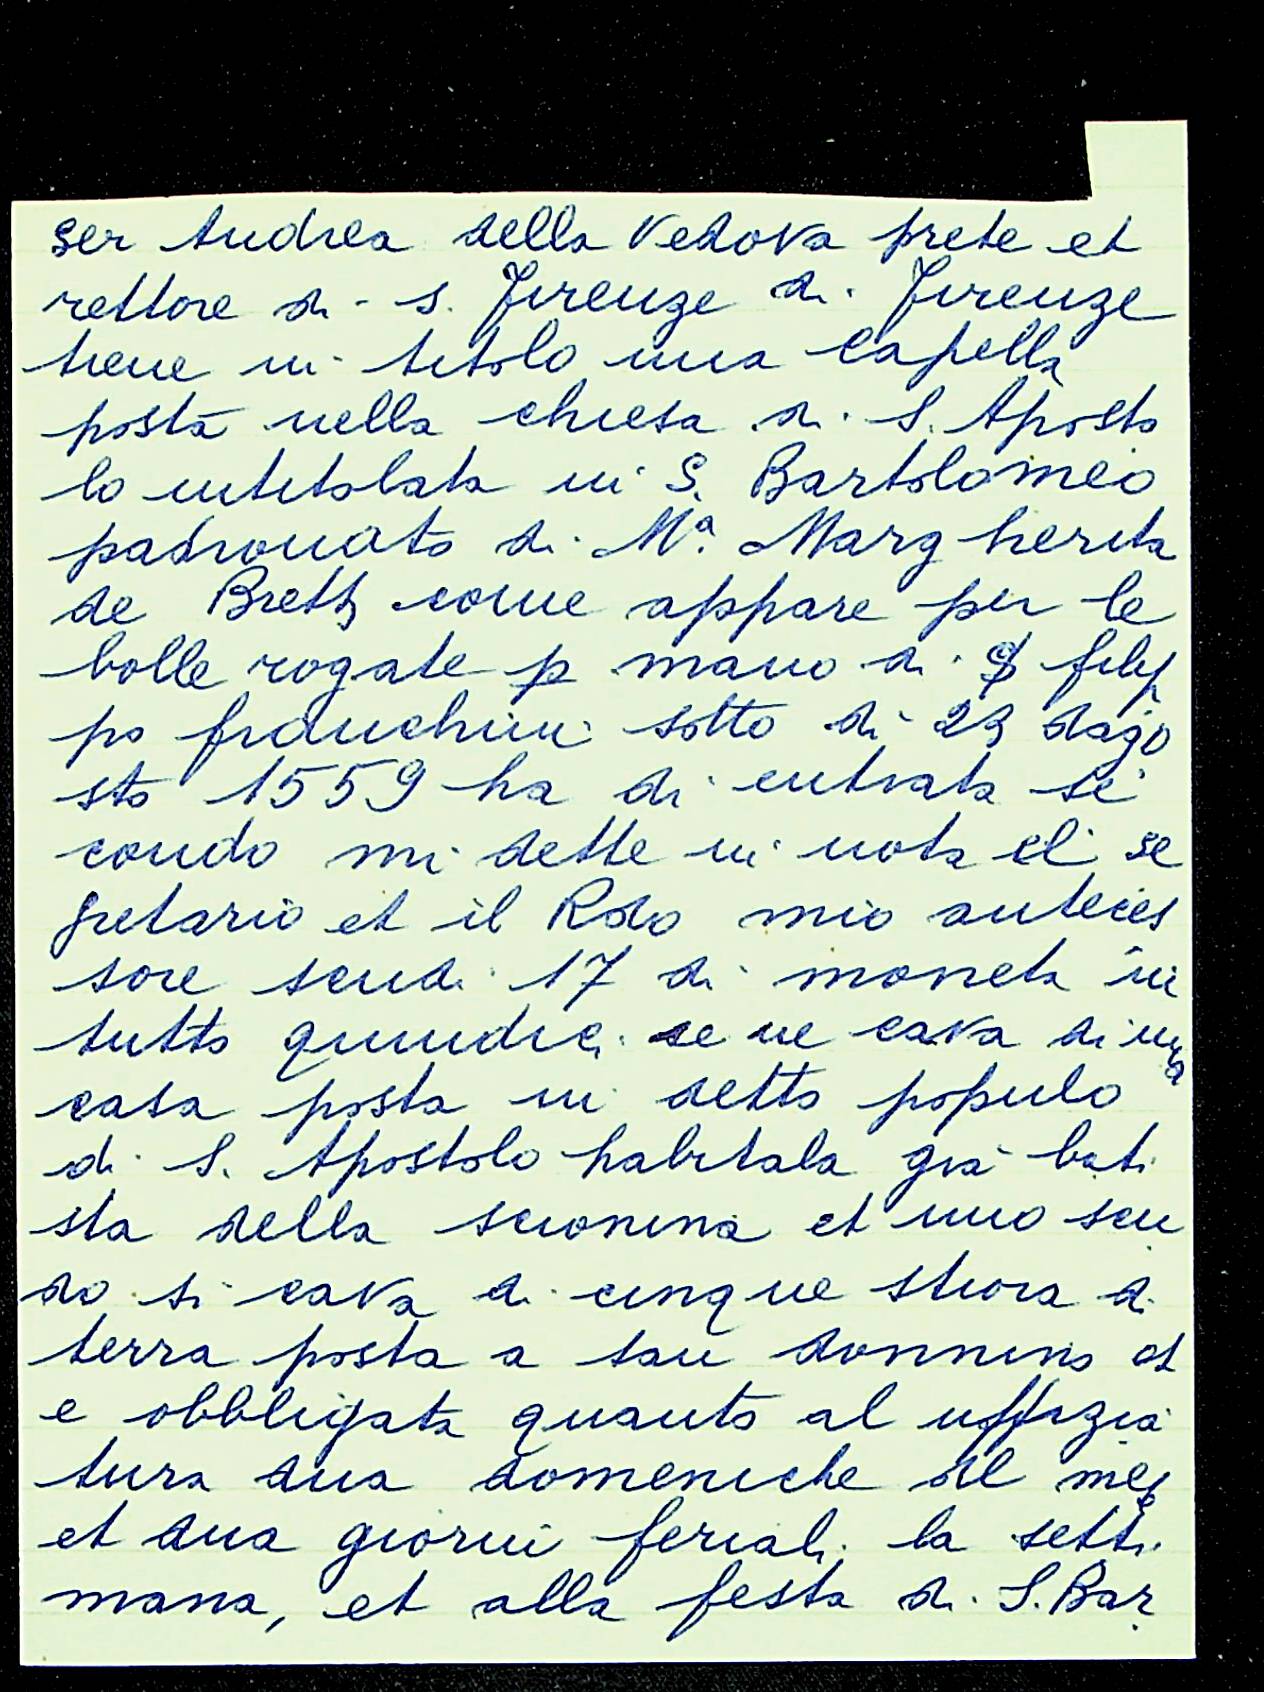 ser Andrea della Vedova prete et
rettore di s. Firenze di Firenze
tiene in titolo una Capella
posta nella chiesa di S. Aposto
lo intitolata in S. Bartolomeo
padronato di Mª. Margherita
de Bretti come appare per le
bolle rogate p mano di S filip
po franchini sotto di 23 dago
sto 1559 ha di entrata se
condo mi dette in nota el se
gretario et il Rdo mio anteces
sore scudi 17 di moneta in
tutto quindici se ne cava di una
casa posta in detto populo
di S. Apostolo habitala già bati
sta della scionina et uno scu
do si cava di cinque stiora di
terra posta a san donnino et
e obbligata quanto al uffizia
tura dua domeniche il mese
et dua giorni feriali la setti
mana, et alla festa di S. Bar